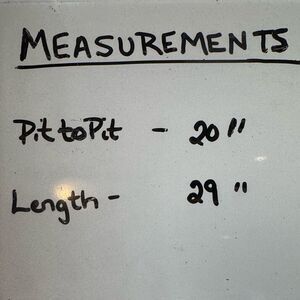 MEASUREMENTS
Pit to Pit - 20"
Length - 29"